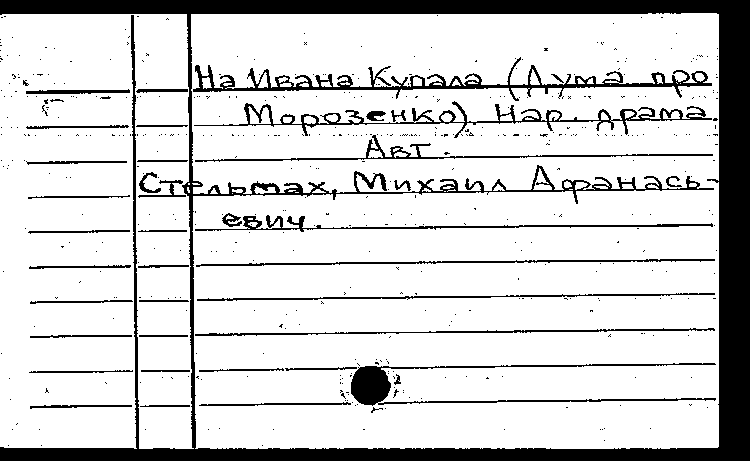 На Ивана Купала (Дума про
Морозенко). Нар. драма.
Авт.
Стельмах, Михаил Афанась-
евич.